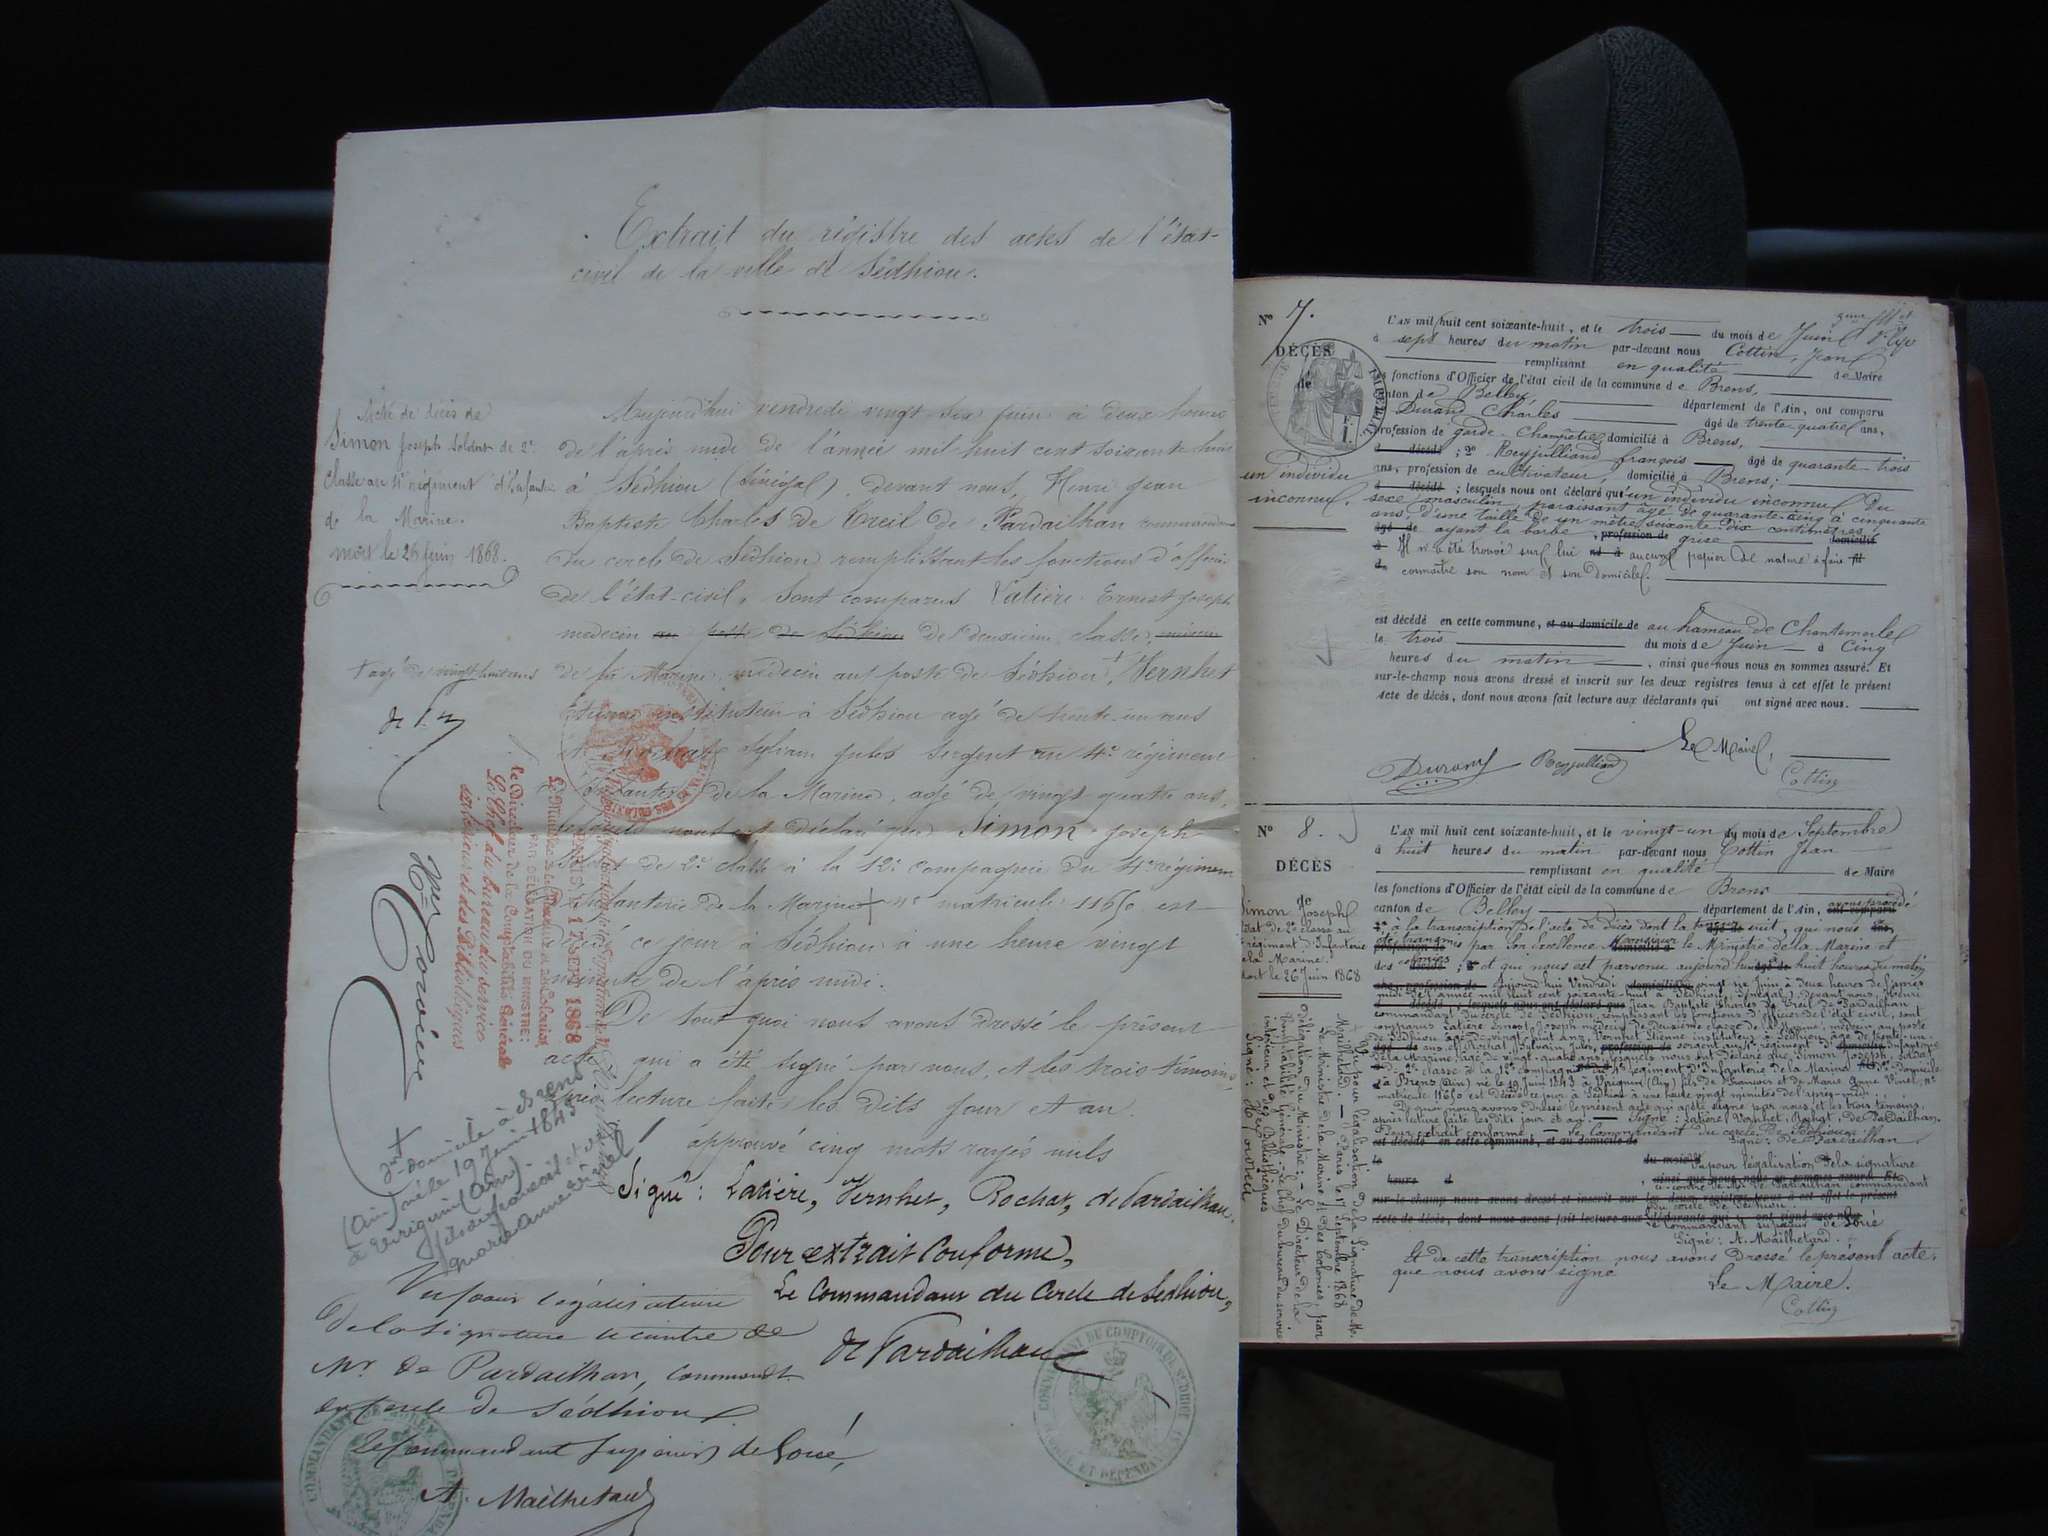 Extrait du régistre des actes de l'état-
civil de la ville de Sédhiou.
Acte de décès de
Simon Joseph Soldat de 2e
classe au 4e régiment d'Infanterie
de la Marine.
mort le 26 juin 1868.
Aujourd'hui vendredi vingt six juin à deux heures
de l'après midi de l'année mil huit cent soixante huit
à Sédhiou (Sénégal), devant nous, Henri Jean
Baptiste Charles de Treil de Pardailhan commandant
du cercle de Sédhiou remplissant les fonctions d'officier
de l'état-civil, sont comparus Latière Ernest Joseph
médecin au poste de Sédhiou de deuxième classe
de la Marine, médecin au poste de Sédhiou + Vernhet
+ agé de vingt huit ans
Etienne instituteur à Sédhiou agé de trente un ans
et Rochat Sylvain Jules Sergent au 4e régiment
d'Infanterie de la Marine, agé de vingt quatre ans,
lesquels nous ont déclaré que Simon Joseph
soldat de 2e classe à la 12e compagnie du 4e régiment
d'Infanterie de la Marine + no matricule 11650 est
décédé ce jour à Sédhiou à une heure vingt
minutes de l'après midi.
De tout quoi nous avons dressé le présent
acte qui a été signé par nous et les trois témoins
après lecture faite les dits jour et an.
approuvé cinq mots rayés nuls
Signé: Latière, Vernhet, Rochat, de Pardailhan.
Pour extrait Conforme,
Le Commandant du Cercle de Sédhiou,
de Pardailhan
+ domicilié à Brens
(Ain) né le 19 juin 1843
à Virignin (Ain)
fils de françois et de
marie anne vinel
Vu pour légalisation
de la signature ci contre de
Mr. de Pardailhan, commandt
du Cercle de Sédhiou
Le Commandant Supérieur de Gorée,
A. Mailhetard
PARIS, LE 17 SEPT 1868
Le Ministre de la Marine et des Colonies
PAR DÉLÉGATION DU MINISTRE:
Le Directeur de la Comptabilité Générale
Le Chef du bureau du service
intérieur et des Bibliothèques
COMMANDANT DU COMPTOIR DE SEDHIOU
GORÉE ET DÉPENDANCES
No 7.
DÉCÈS
de
un individu
inconnu.
L'AN mil huit cent soixante-huit, et le trois du mois de Juin
à sept heures du matin par-devant nous Cottin, Jean
remplissant en qualité de Maire
les fonctions d'Officier de l'état civil de la commune de Brens,
canton de Belley département de l'Ain, ont comparu
Durand Charles âgé de trente-quatre ans,
profession de garde-Champêtre domicilié à Brens,
d décédé ; 2o Reyjulliand françois âgé de quarante-trois
ans, profession de cultivateur, domicilié à Brens;
d décédé ; lesquels nous ont déclaré qu'un individu inconnu du
sexe masculin, paraissant agé de quarante-cinq à cinquante
ans, d'une taille de un mètre soixante dix centimètres,
âgé de ayant la barbe, profession de grise domicilié
Il n'a été trouvé sur lui aucun papier de nature à faire
connaître son nom et son domicile.
est décédé en cette commune, et au domicile de au hameau de Chantemerle
le trois du mois de Juin à Cinq
heures du matin, ainsi que nous nous en sommes assuré. Et
sur-le-champ nous avons dressé et inscrit sur les deux registres tenus à cet effet le présent
acte de décès, dont nous avons fait lecture aux déclarants qui ont signé avec nous.
Le Maire,
Durand Reyjulliand Cottin
No 8.
DÉCÈS
de
Simon Joseph
soldat de 2e classe au
régiment d'Infanterie
de la Marine.
mort le 26 Juin 1868
L'AN mil huit cent soixante-huit, et le vingt-un du mois de Septembre
à huit heures du matin par-devant nous Cottin Jean
remplissant en qualité de Maire
les fonctions d'Officier de l'état civil de la commune de Brens
canton de Belley département de l'Ain, avons procédé
à la transcription de l'acte de décès dont la teneur suit, que nous
a transmis par son Excellence Monsieur le Ministre de la Marine et
des colonies et qui nous est parvenu aujourd'hui à huit heures du matin
Aujourd'hui Vendredi vingt six Juin, à deux heures de l'après
midi de l'année mil huit cent soixante-huit à Sédhiou, (Sénégal) devant nous, Henri
Jean Baptiste Charles de Treil de Pardailhan
commandant du cercle de Sédhiou, remplissant les fonctions d'officier de l'état civil, sont
comparus Latière Ernest Joseph médecin de deuxième classe de la Marine, médecin au poste
de Sédhiou âgé de vingt-huit ans, Vernhet Etienne instituteur à Sédhiou, âgé de trente-un
ans et Rochat Sylvain Jules, sergent au 4e régiment d'Infanterie
de la Marine, agé de vingt-quatre ans, lesquels nous ont déclaré que Simon Joseph, soldat
de 2e classe à la 12e compagnie du 4e régiment d'Infanterie de la Marine domicilié
à Brens (Ain) né le 19 Juin 1843 à Virignin (Ain) fils de françois et de Marie Anne Vinel, No
matricule 11650 est décédé ce jour à Sédhiou à une heure vingt minutes de l'après-midi.
De quoi nous avons dressé le présent acte qui a été signé par nous et les trois témoins,
après lecture faite les dits jour et an. Signé: Latière, Vernhet, Rochat, de Pardailhan.
Pour extrait conforme, le Commandant du cercle de Sédhiou
Signé: de Pardailhan
est décédé en cette commune, et au domicile de
Vu pour légalisation de la signature
ci contre de Mr de Pardailhan commandant
du cercle de Sédhiou.
sur-le-champ nous avons dressé et inscrit sur les deux registres tenus à cet effet le présent
acte de décès, dont nous avons fait lecture aux déclarants qui ont signé avec nous
Le Commandant supérieur de Gorée
Signé: A. Mailhetard.
Et de cette transcription nous avons dressé le présent acte
que nous avons signé
Le Maire.
Cottin
Vu pour légalisation de la signature de Mr.
Mailhetard. — Paris le 17 Septembre 1868
Le Ministre de la Marine et des Colonies, par
délégation du Ministre: — Le Directeur de la
Comptabilité Générale — Le Chef du bureau du service
intérieur et des Bibliothèques